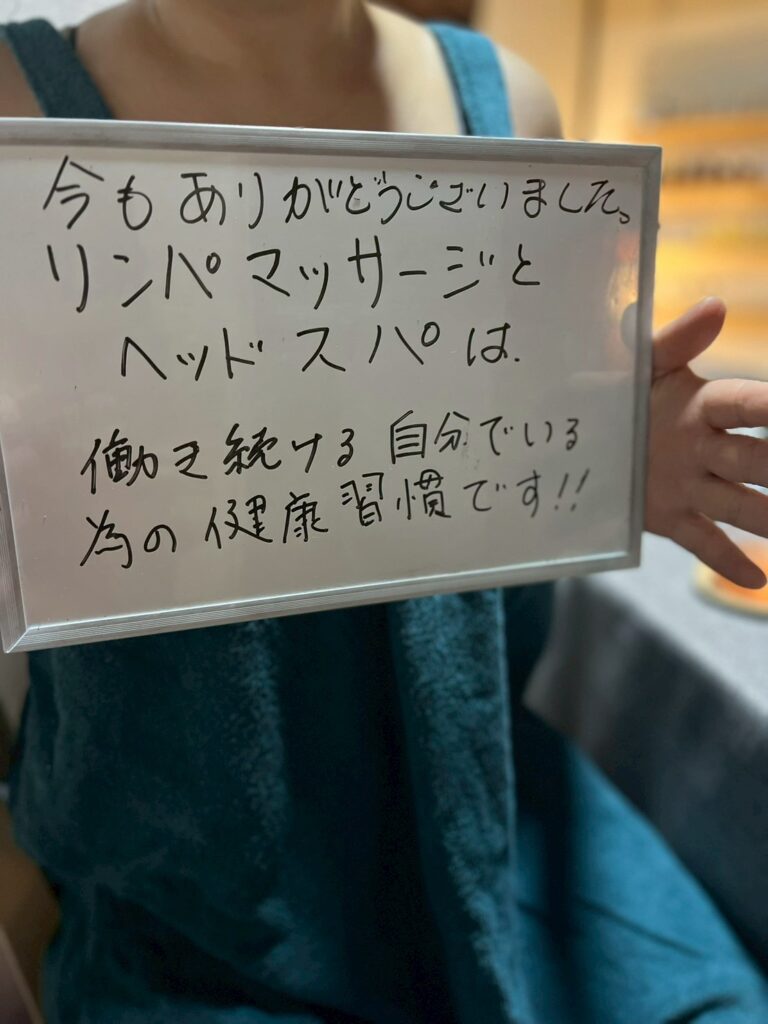 今もありがどうございました。
リンパマッサージと
ヘッドスパは、
働き続ける自分でいる
為の健康習慣です!!